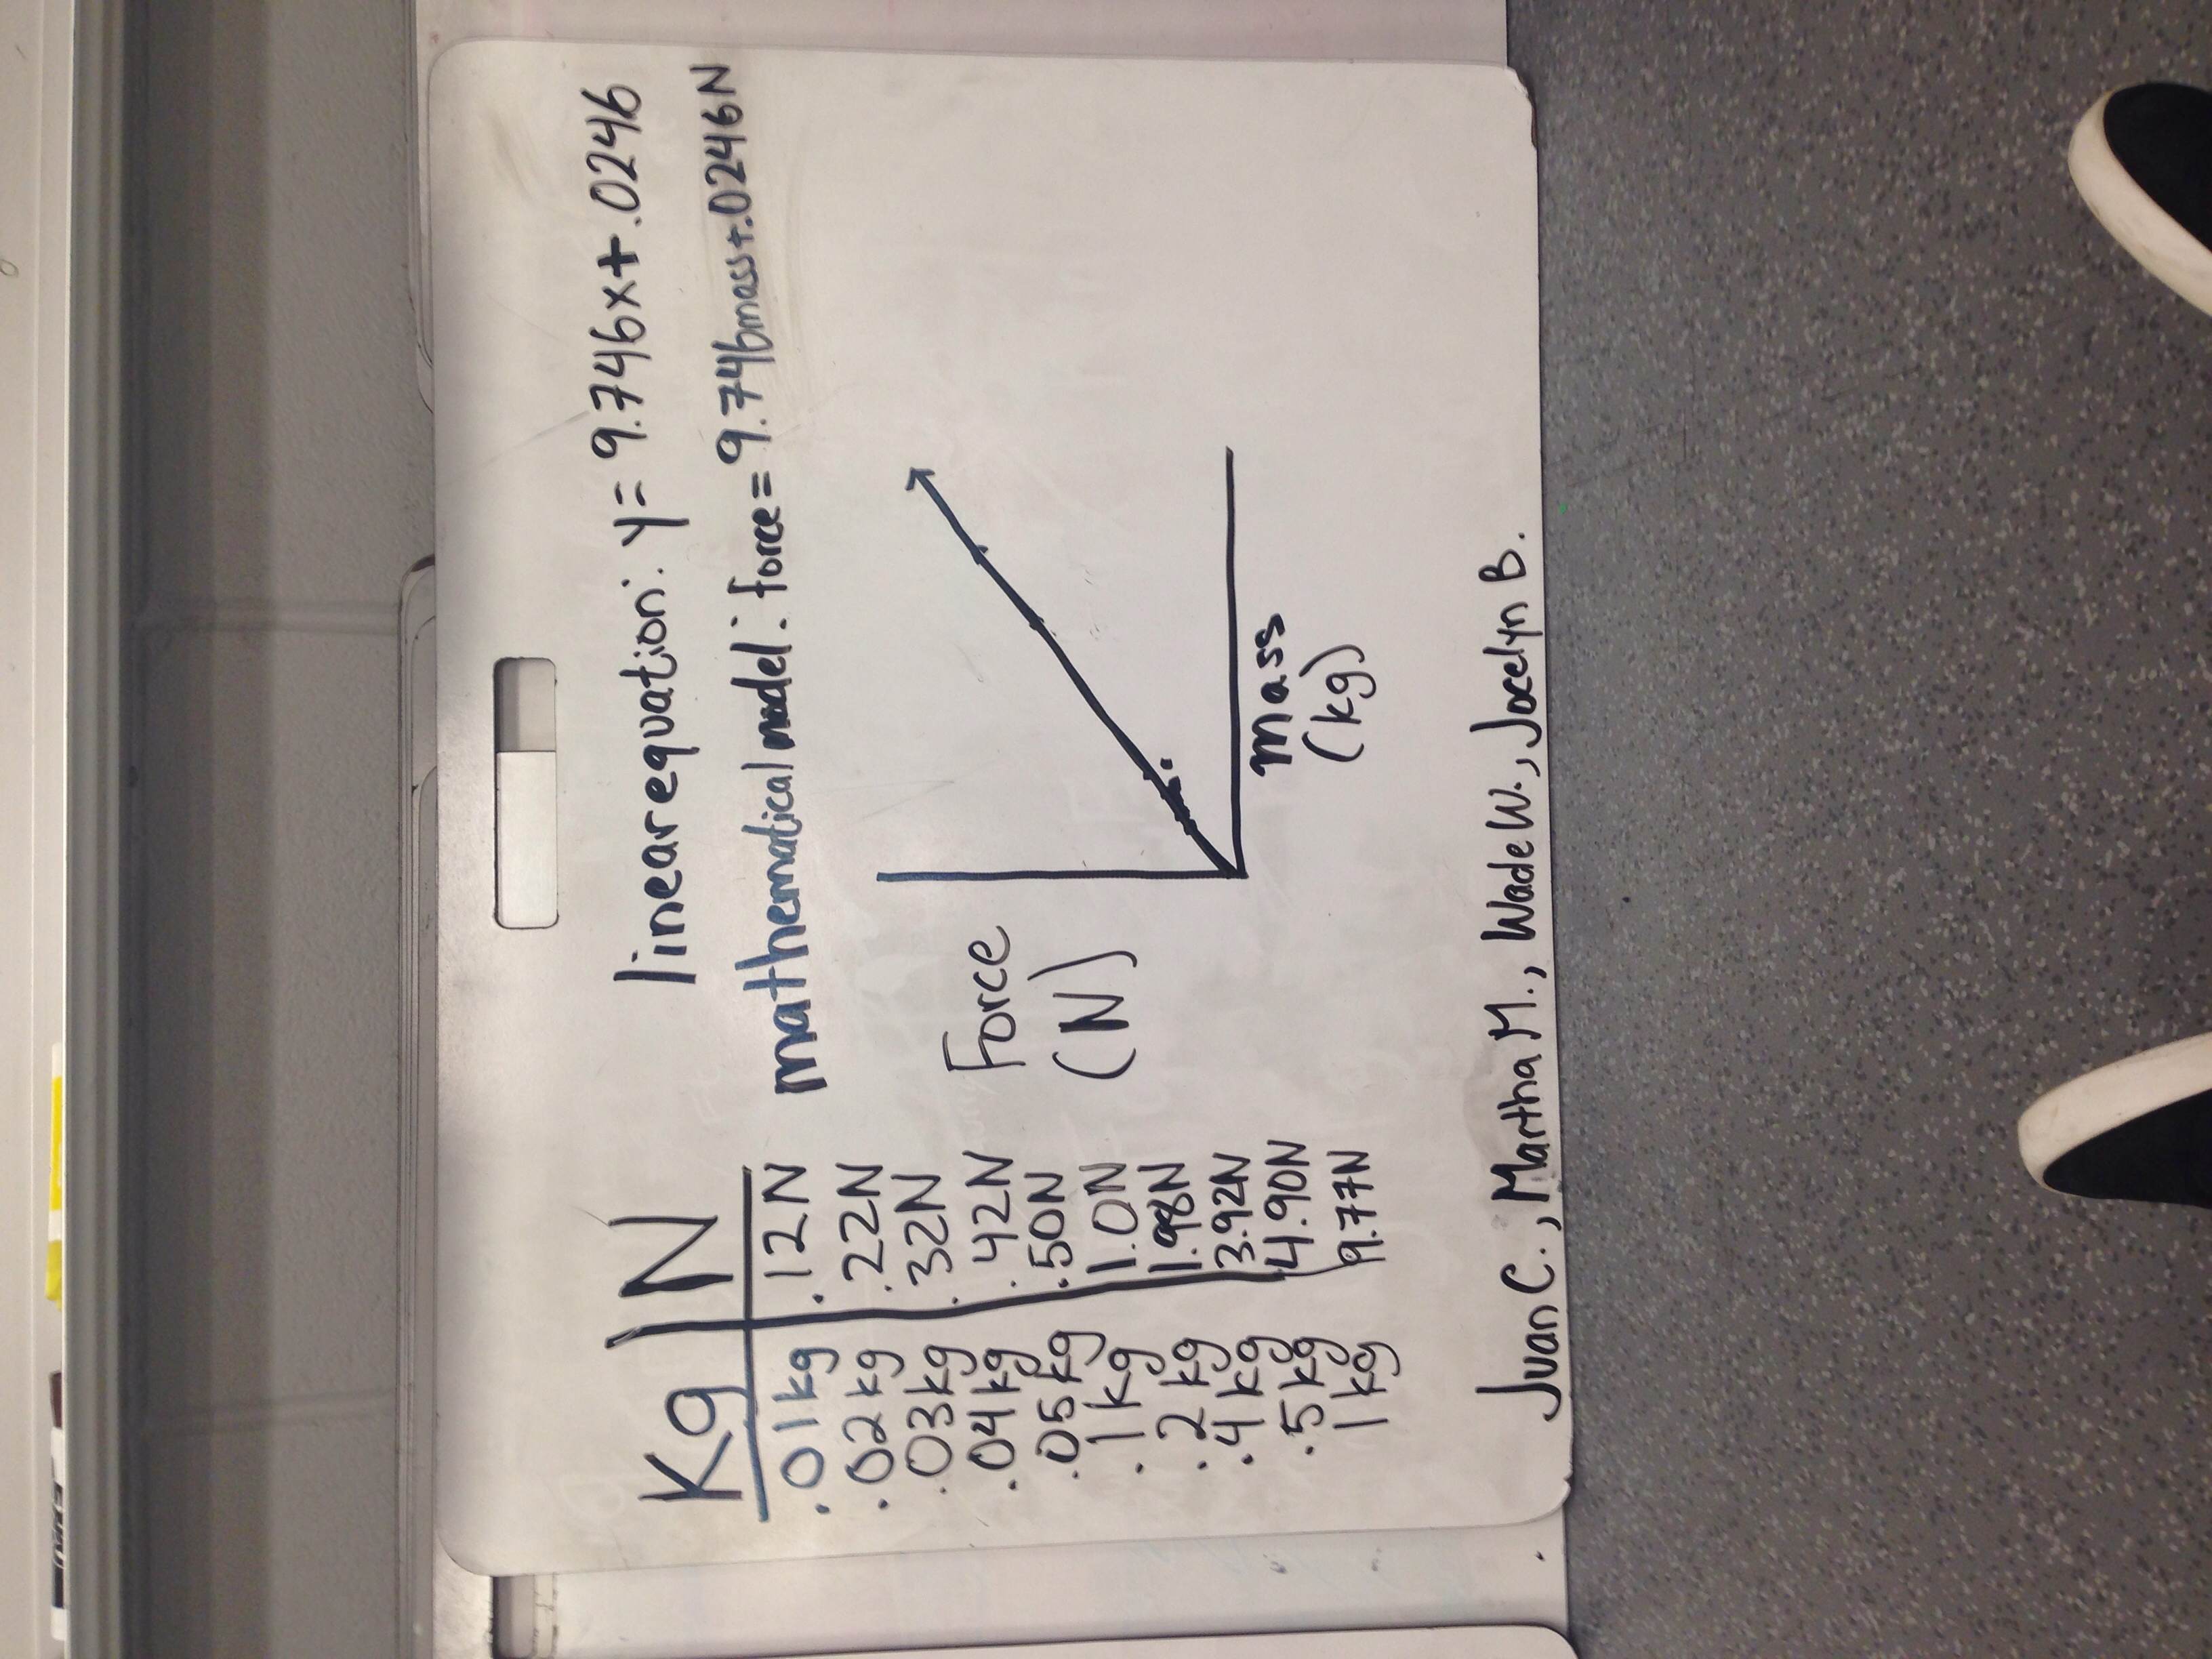 linear equation: y = 9.746x + .0246
mathematical model: force = 9.746mass + .0246N
Kg N
.01kg .12N
.02kg .22N
.03kg .32N
.04kg .42N
.05kg .50N
.1kg 1.0N
.2kg 1.98N
.4kg 3.92N
.5kg 4.90N
1kg 9.77N
Force
(N)
mass
(kg)
Juan C., Martha M., Wade W., Jocelyn B.